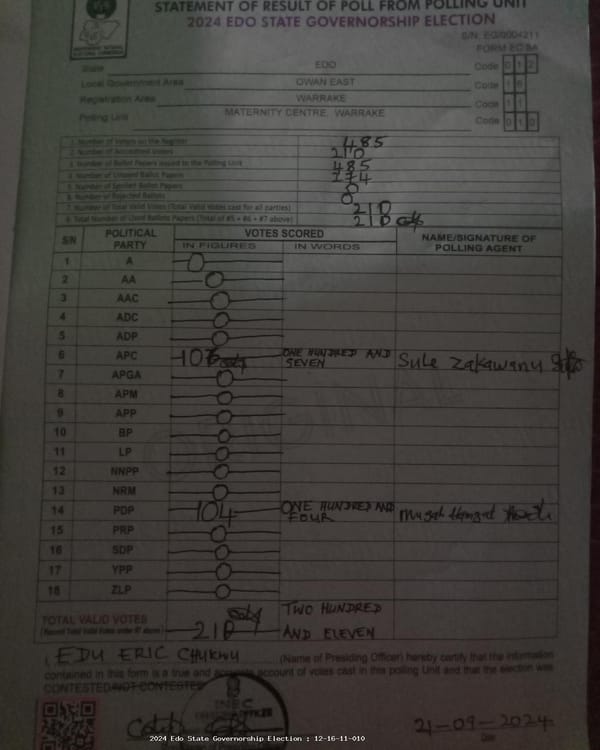 STATEMENT OF RESULT OF POLL FROM POLLING UNIT
2024 EDO STATE GOVERNORSHIP ELECTION
S/N: EG/0004211
FORM EC 8A
State EDO Code 0 1 2
Local Government Area OWAN EAST Code 1 6
Registration Area WARRAKE Code 1 1
Polling Unit MATERNITY CENTRE, WARRAKE Code 0 1 0
1 Number of Voters on the Register 485
2 Number of Accredited Voters
3 Number of Ballot Papers Issued to the Polling Unit 485
4 Number of Unused Ballot Papers 274
5 Number of Spoiled Ballot Papers 0
6 Number of Rejected Ballots 0
7 Number of Total Valid Votes (Total Valid Votes cast for all parties)
8 Total Number of Used Ballots Papers (Total of #5 + #6 + #7 above)
S/N POLITICAL PARTY VOTES SCORED NAME/SIGNATURE OF POLLING AGENT
IN FIGURES IN WORDS
1 A 0
2 AA 0
3 AAC 0
4 ADC 0
5 ADP 0
6 APC ONE HUNDRED AND SEVEN Sule Zakawanu
7 APGA 0
8 APM 0
9 APP 0
10 BP 0
11 LP 0
12 NNPP 0
13 NRM 0
14 PDP 104 ONE HUNDRED AND FOUR Musah
15 PRP 0
16 SDP 0
17 YPP 0
18 ZLP 0
TOTAL VALID VOTES TWO HUNDRED AND ELEVEN
I, EDU ERIC CHUKWU (Name of Presiding Officer) hereby certify that the information
contained in this form is a true and accurate account of votes cast in this polling Unit and that the election was
CONTESTED/NOT CONTESTED
INEC
21-09-2024
Date
2024 Edo State Governorship Election : 12-16-11-010